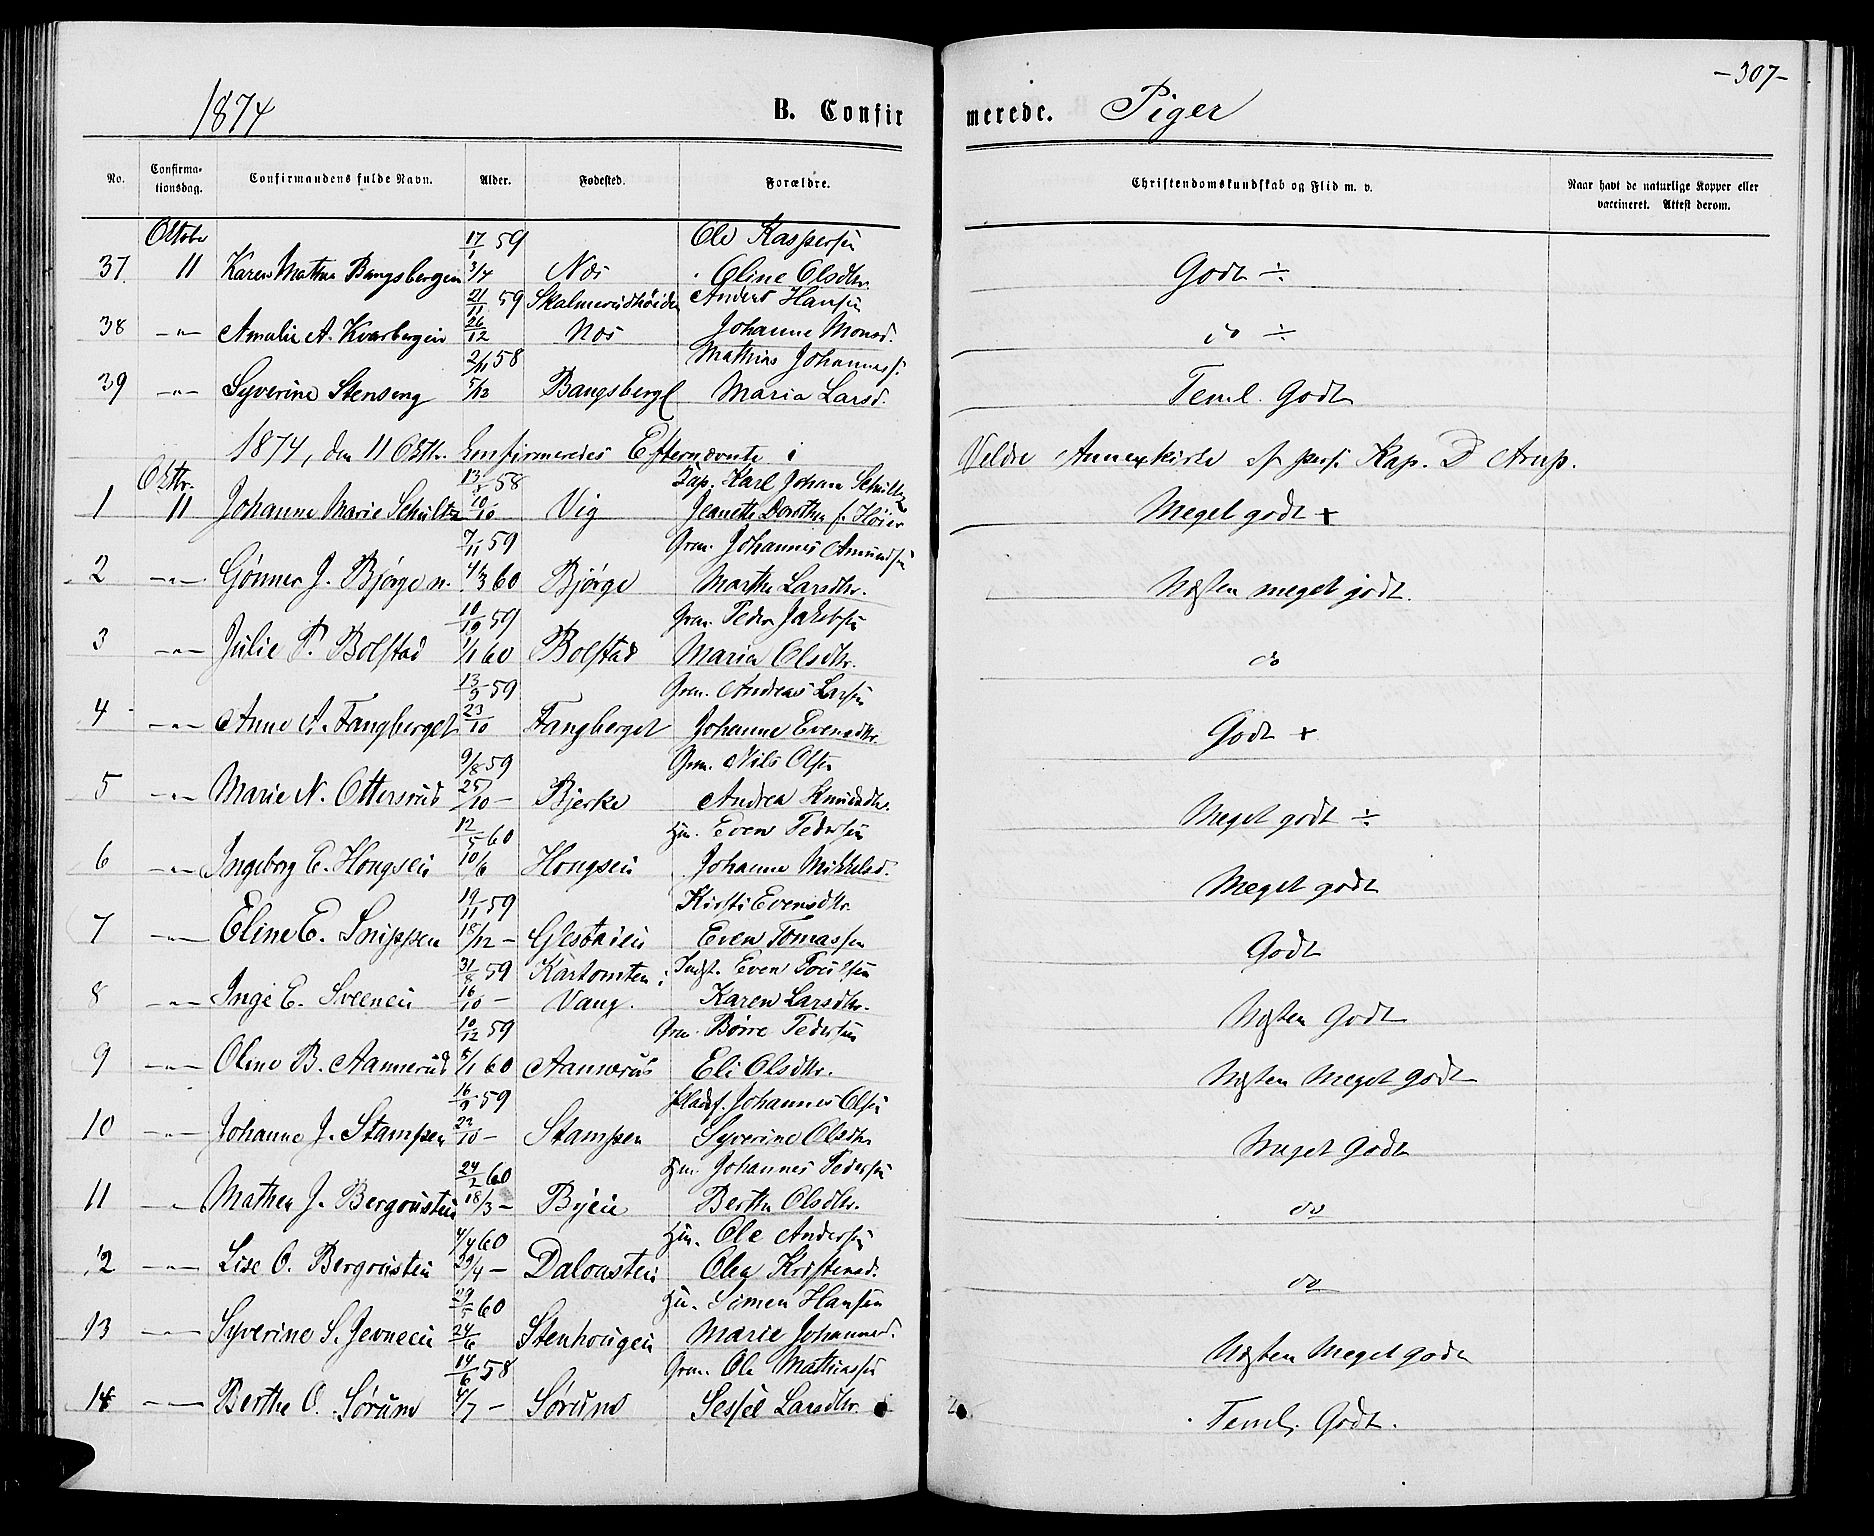 -307-
1874 B. Confirmerede. Piger
No. Confirmationsdag. Confirmandens fulde Navn. Alder. Fødested. Forældre. Christendomskundskab og Flid m. v. Naar havt de naturlige Kopper eller vaccineret. Attest derom.
Oktobr 17/1 59 Ole Kaspersen
37. 11 Karen Mathea Bangsbergen 3/4 Næs Oline Olsdtr. Godt ÷
21/11 59 Skalmerudhöiden Anders Hansen
38 -"- Amalie A. Kvarbergen 26/12 Næs Johanne Monsd. do ÷
2/11 58 Mathias Johanness.
39 -"- Syverine Stenseng 5/12 Bangsberg Maria Larsd. Teml. Godt
1874, den 11 Oktbr. Confirmeredes Efternævnte i Veldre Annexkirke af pers. Kap. D Arup.
Oktbr. 13/ 58 Kap. Karl Johan Schultz
1 11 Johanne Marie Schultz 10/10 Vig Jeanette Dorothea f. Höier Meget godt +
7/11 59 Grm. Johannes Amundsen
2 -"- Gönner J. Bjørge n. 4/3 60 Bjørge Marthe Larsdtr. Næsten meget godt.
10/10 59 Grm. Peder Jakobsen
3 -"- Julie P. Bolstad 1/1 60 Bolstad Maria Olsdtr. do
13/9 59 Grm. Andreas Larsen
4 -"- Anne A. Fangberget 23/10 Fangberget Johanne Evensdtr. Godt +
9/8 59 Grm. Nils Olsen
5 -"- Marie N. Ottersrud 25/10 - Bjerke Andrea Knudsdtr. Meget godt ÷
12/5 60 Hm. Even Pedersen
6 -"- Ingeborg E. Hongseie 10/6 Hongseie Johanne Mikkelsd. Meget godt
19/11 59 Kirsti Evensdtr.
7 -"- Eline E. Snippen 18/12 - Glestadeie Even Tomassen Godt
31/8 59 Kartomten i Indst. Even Poulsen
8 -"- Inge E. Sveeneie 16/10 - Vang. Karen Larsdtr. Næsten Godt
10/12 59 Grm. Börre Pedersen
9 -"- Oline B. Aannerud 8/1 60 Aannerud Eli Olsdtr. Næsten Meget Godt
16/9 59 Pladsf. Johannes Olsen
10 -"- Johanne J. Stampen 22/10 - Stampen Syverine Olsdtr Meget Godt
24/2 60 Hm. Johannes Pedersen
11 -"- Mathea J. Bergousteie 18/3 - Byeie Berthe Olsdtr. do
4/4 60 Hm. Ole Andersen
12 -"- Lise O. Bergousteie 29/4 - Dalousteie Olea Kristensd. do
29/5 60 Hm. Simen Hansen
13 -"- Syverine S. Jevneeie 24/6 Stenhougeie Marie Johannesd. Næsten Meget godt
14/6 58 Grm. Ole Mathiassen
14 -"- Berthe O. Sørum 4/7 - Sørum Sessel Larsdtr. Teml. Godt.